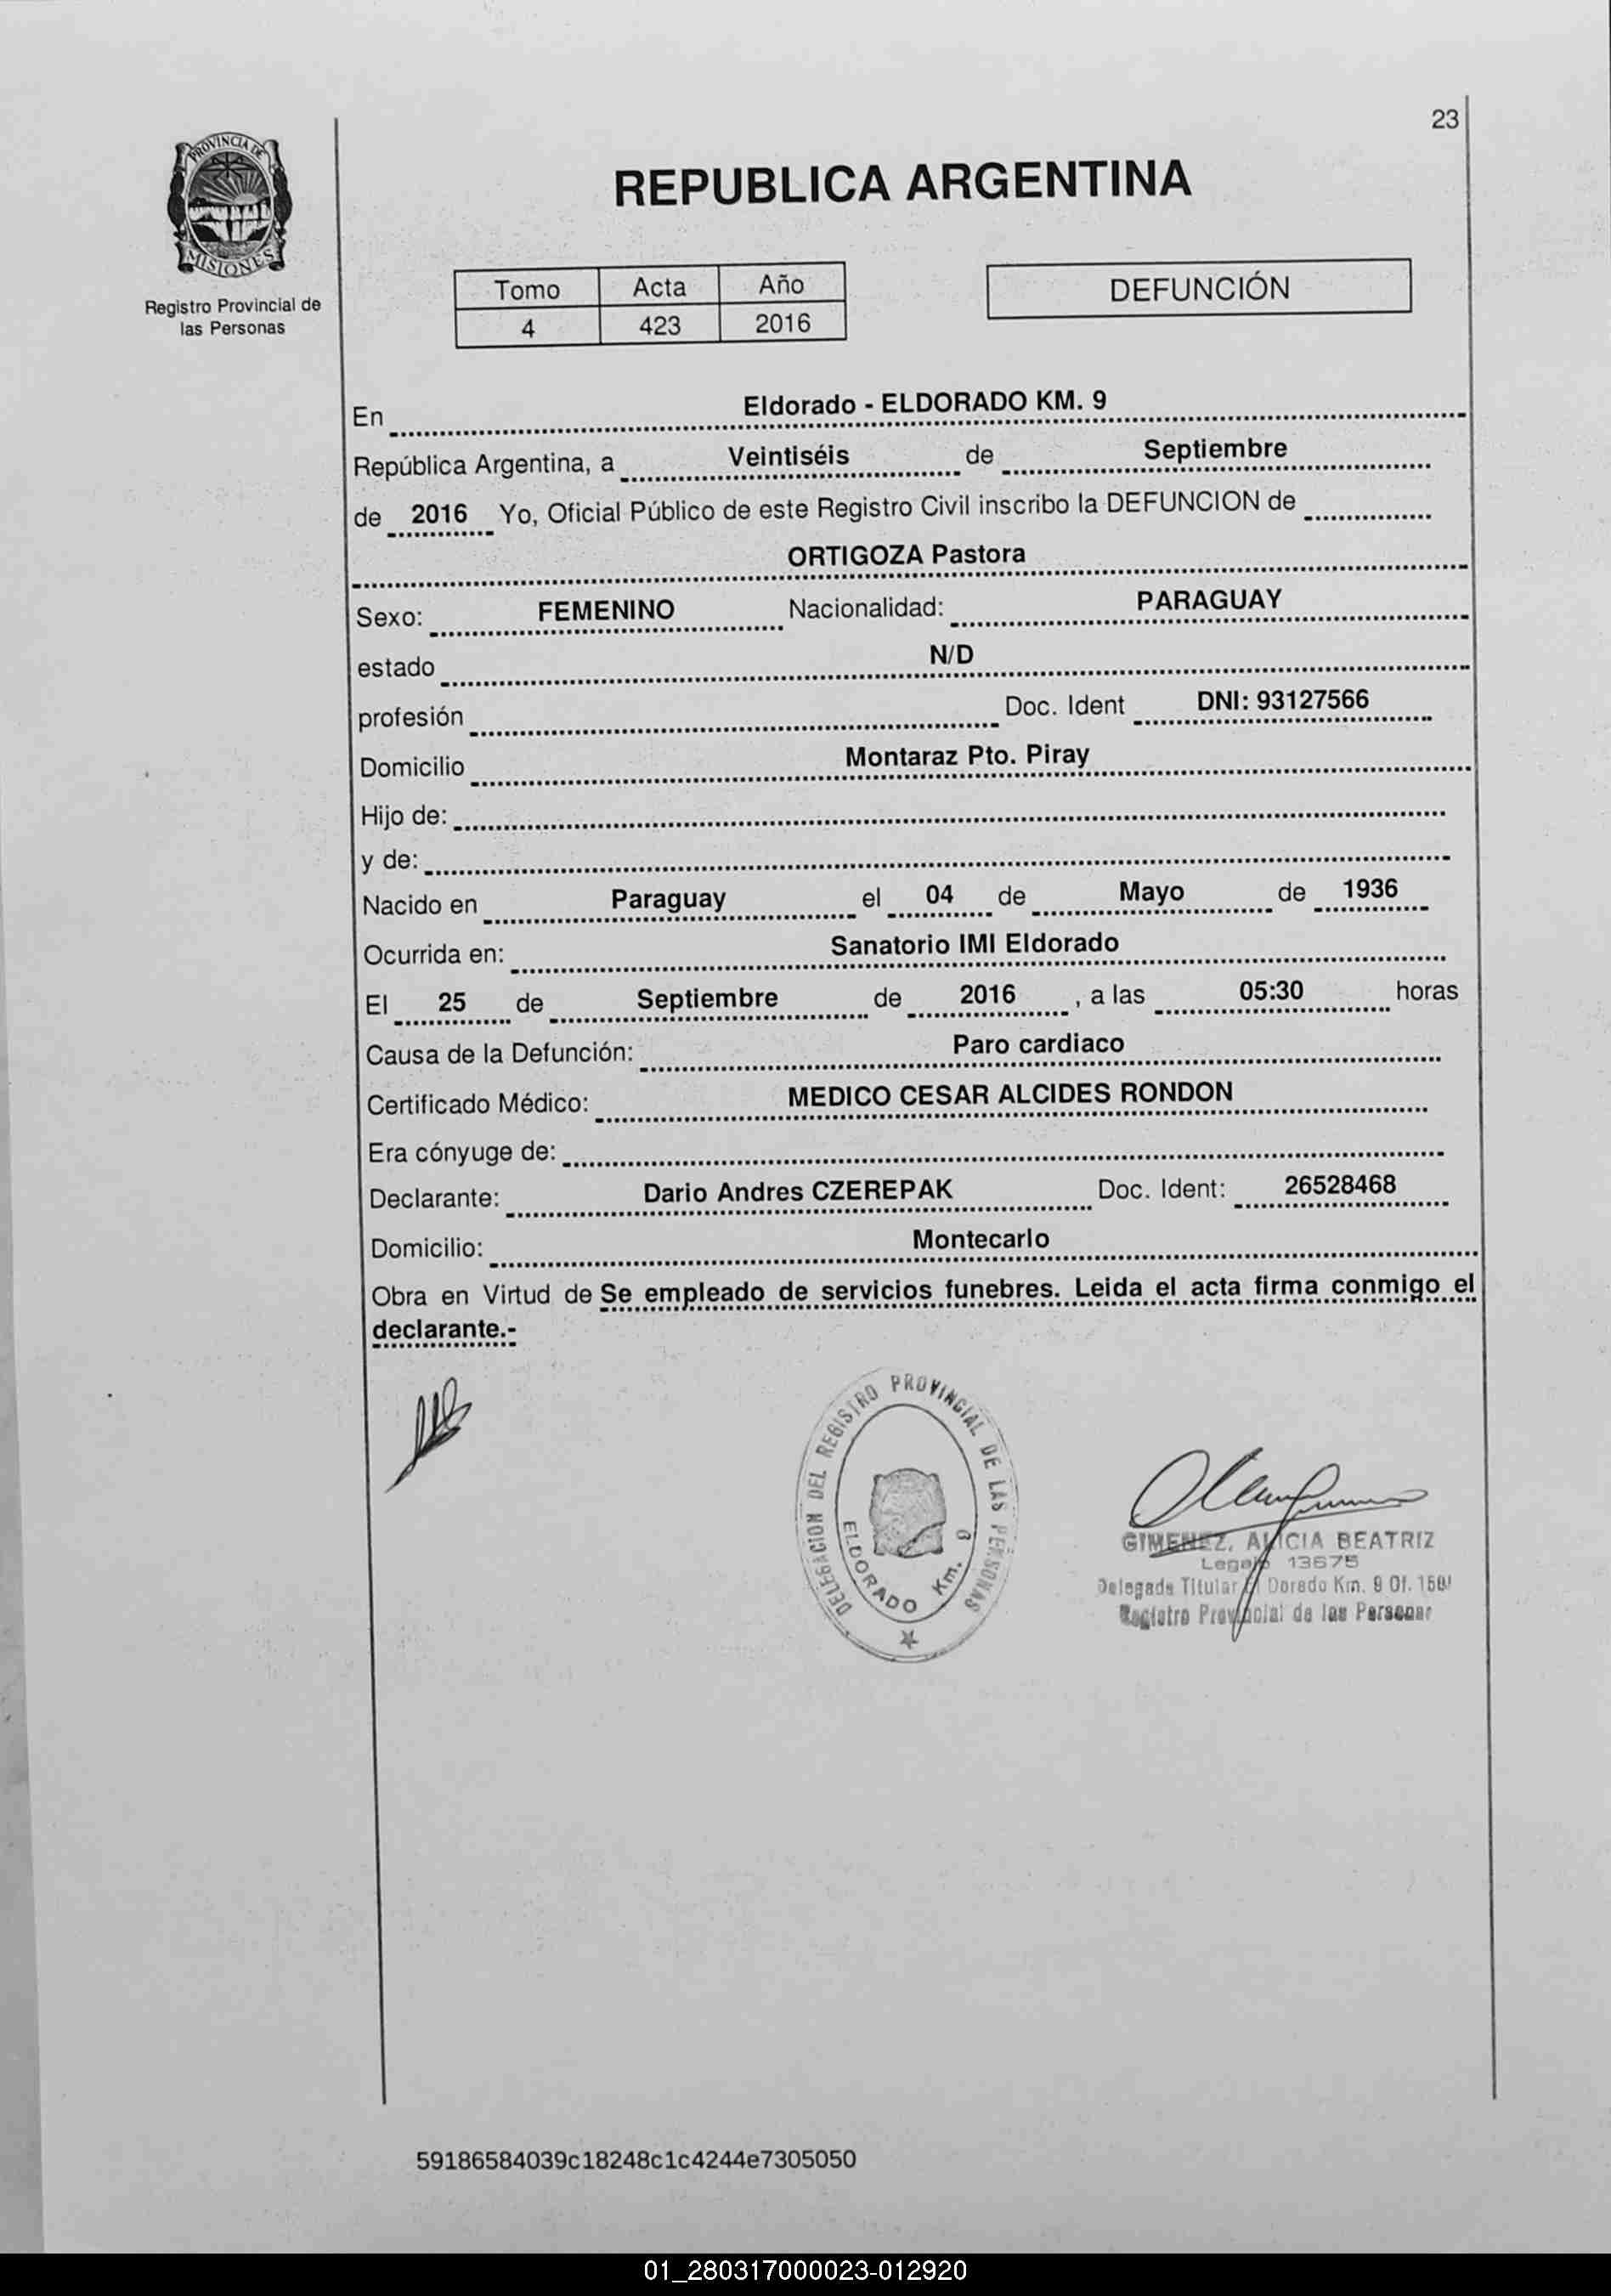 23
PROVINCIA DE
MISIONES
Registro Provincial de
las Personas
REPUBLICA ARGENTINA
Tomo Acta Año
4 423 2016
DEFUNCIÓN
En Eldorado - ELDORADO KM. 9
República Argentina, a Veintiséis de Septiembre
de 2016 Yo, Oficial Público de este Registro Civil inscribo la DEFUNCION de
ORTIGOZA Pastora
Sexo: FEMENINO Nacionalidad: PARAGUAY
estado N/D
profesión Doc. Ident DNI: 93127566
Domicilio Montaraz Pto. Piray
Hijo de:
y de:
Nacido en Paraguay el 04 de Mayo de 1936
Ocurrida en: Sanatorio IMI Eldorado
El 25 de Septiembre de 2016 , a las 05:30 horas
Causa de la Defunción: Paro cardiaco
Certificado Médico: MEDICO CESAR ALCIDES RONDON
Era cónyuge de:
Declarante: Dario Andres CZEREPAK Doc. Ident: 26528468
Domicilio: Montecarlo
Obra en Virtud de Se empleado de servicios funebres. Leida el acta firma conmigo el
declarante.-
DELEGACION DEL REGISTRO PROVINCIAL DE LAS PERSONAS
ELDORADO Km. 9
GIMENEZ, ALICIA BEATRIZ
Legajo 13675
Delegada Titular El Dorado Km. 9 Of.
Registro Provincial de las Personas
59186584039c18248c1c4244e7305050
01_280317000023-012920